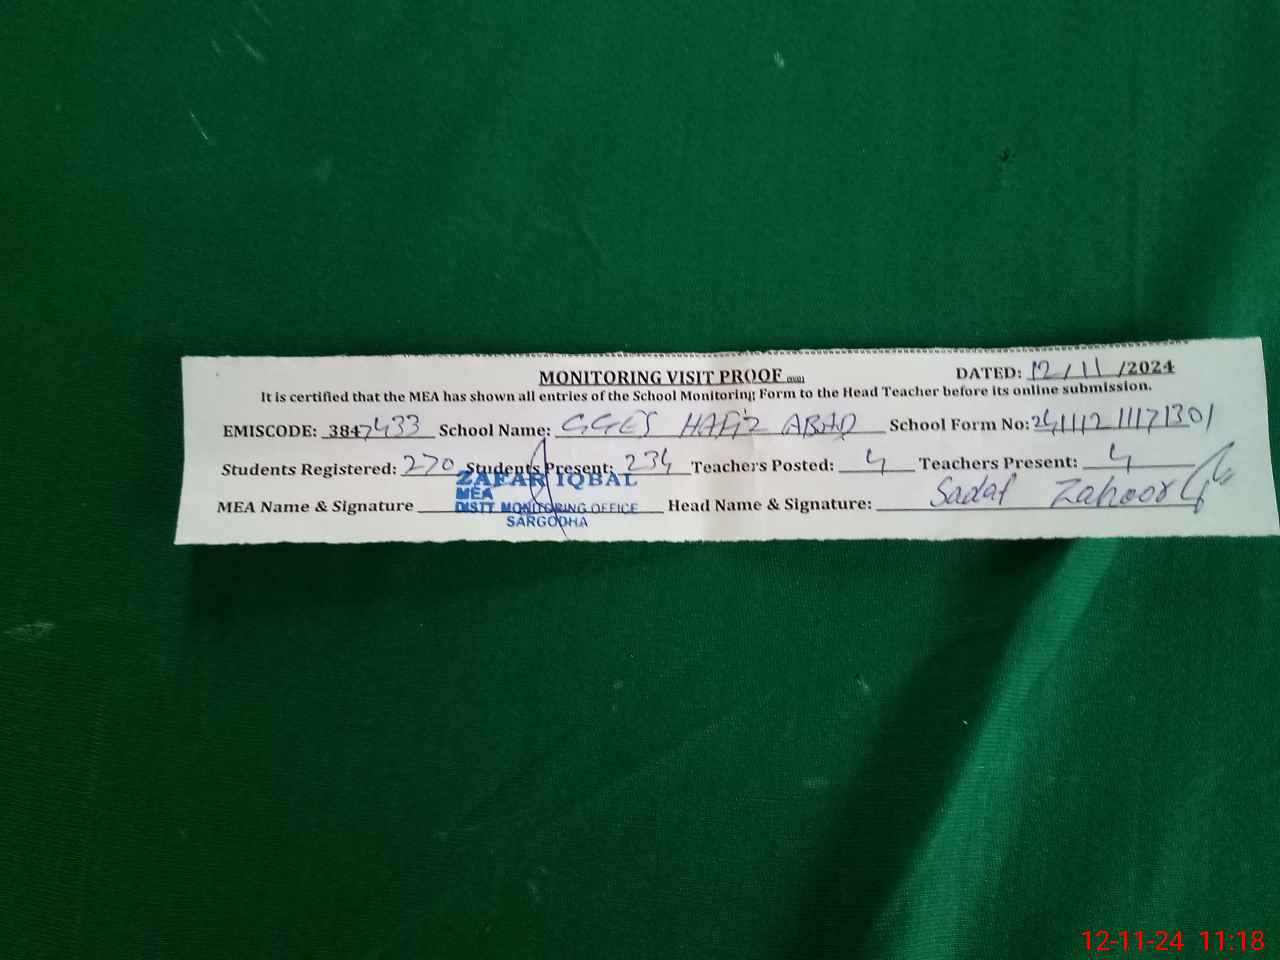 MONITORING VISIT PROOF
DATED: 12/11/2024
It is certified that the MEA has shown all entries of the School Monitoring Form to the Head Teacher before its online submission.
EMISCODE: 3847433 School Name: GGES HAFIZ ABAD School Form No: 24111211171301
Students Registered: 270 Students Present: 234 Teachers Posted: 4 Teachers Present: 4
MEA Name & Signature Head Name & Signature: Sadaf Zahoor
ZAFAR IQBAL
MEA
DISTT MONITORING OFFICE
SARGODHA
12-11-24 11:18